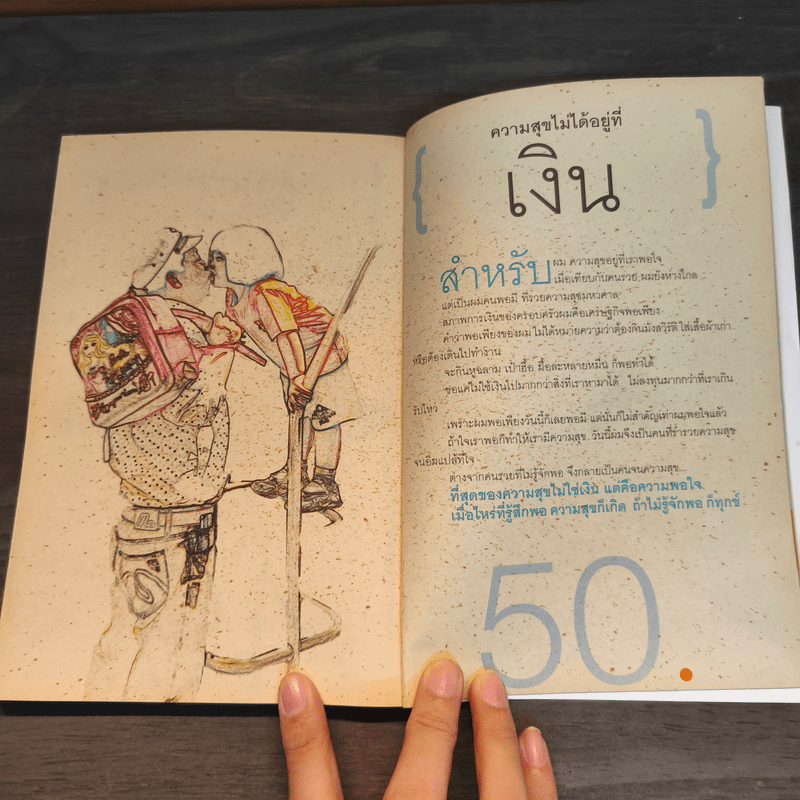 ความสุขไม่ได้อยู่ที่
{ เงิน }
สำหรับผม ความสุขอยู่ที่เราพอใจ
เมื่อเทียบกับคนรวย ผมยังห่างไกล
แต่เป็นผมคนพอมี ที่รวยความสุขมหาศาล
สภาพการเงินของครอบครัวผมคือเศรษฐกิจพอเพียง
คำว่าพอเพียงของผม ไม่ได้หมายความว่าต้องกินมังสวิรัติ ใส่เสื้อผ้าเก่า
หรือต้องเดินไปทำงาน
จะกินหูฉลาม เป๋าฮื้อ มื้อละหลายหมื่น ก็พอทำได้
ขอแค่ไม่ใช้เงินไปมากกว่าสิ่งที่เราหามาได้ ไม่ลงทุนมากกว่าที่เราเกิน
รับไหว
เพราะผมพอเพียงวันนี้ก็เลยพอมี แต่นั่นก็ไม่สำคัญเท่าผมพอใจแล้ว
ถ้าใจเราพอก็ทำให้เรามีความสุข วันนี้ผมจึงเป็นคนที่ร่ำรวยความสุข
จนอิ่มแปล้ที่ใจ
ต่างจากคนรวยที่ไม่รู้จักพอ จึงกลายเป็นคนจนความสุข...
ที่สุดของความสุขไม่ใช่เงิน แต่คือความพอใจ
เมื่อไหร่ที่รู้สึกพอ ความสุขก็เกิด ถ้าไม่รู้จักพอ ก็ทุกข์
50.